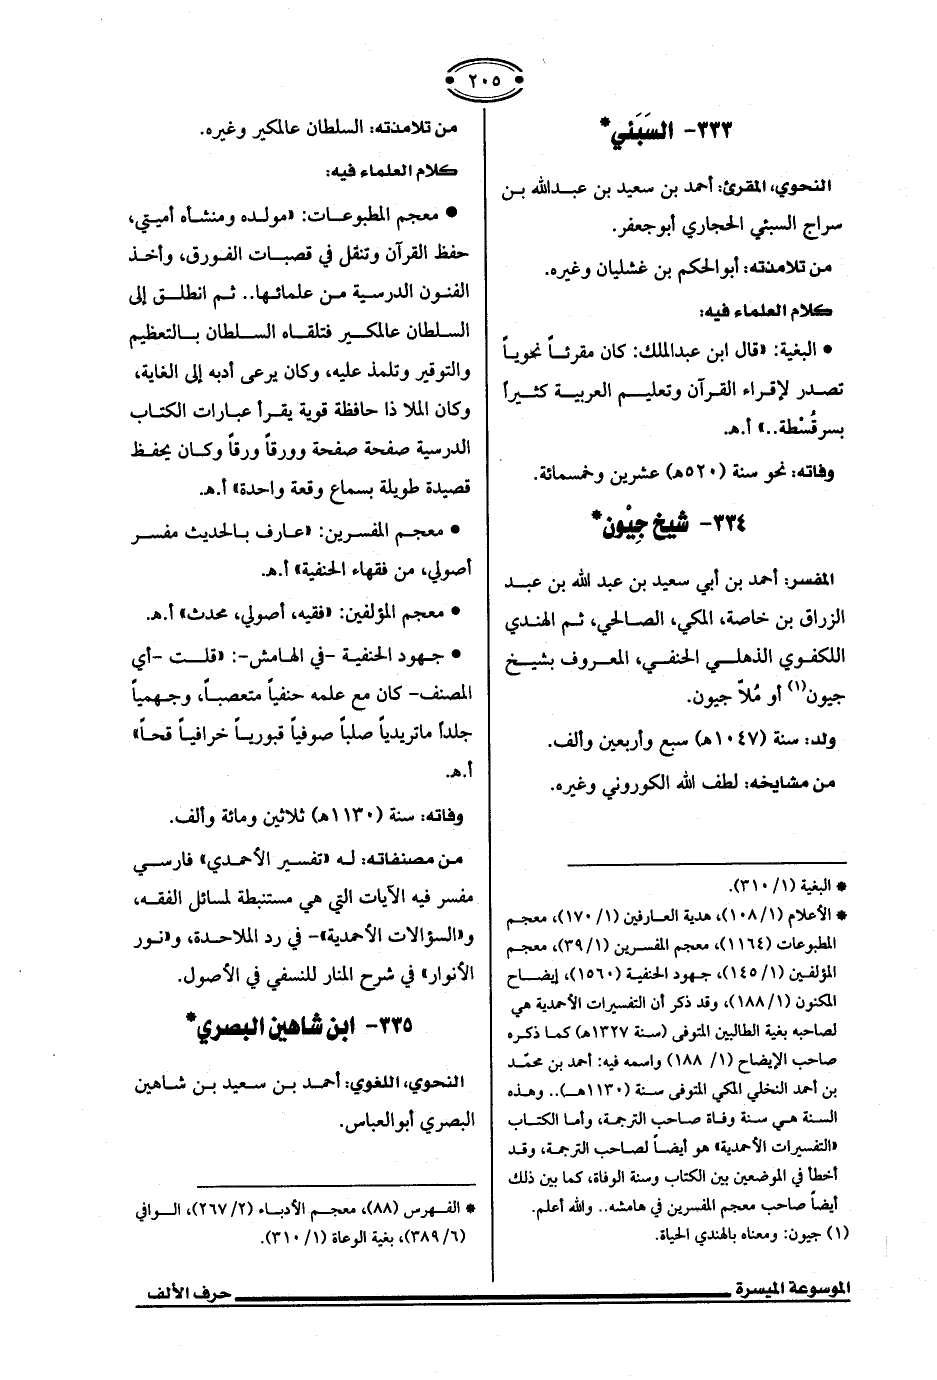 ٢٠٥
٣٣٣- السَبَئي*
النحوي، المقرئ: أحمد بن سعيد بن عبدالله بن
سراج السبئي الحجاري أبوجعفر.
من تلامذته: أبوالحكم بن غشليان وغيره.
كلام العلماء فيه:
• البغية: «قال ابن عبدالملك: كان مقرئاً نحوياً
تصدر لإقراء القرآن وتعليم العربية كثيراً
بسرقُسْطة..» أ.هـ.
وفاته: نحو سنة (٥٢٠هـ) عشرين وخمسمائة.
٣٣٤- شيخ جِيْون*
المفسر: أحمد بن أبي سعيد بن عبد الله بن عبد
الرزاق بن خاصة، المكي، الصالحي، ثم الهندي
اللكفوي الذهلي الحنفي، المعروف بشيخ
جيون(١) أو مُلاّ جيون.
ولد: سنة (١٠٤٧هـ) سبع وأربعين وألف.
من مشايخه: لطف الله الكوروني وغيره.
* البغية (١/ ٣١٠).
* الأعلام (١/ ١٠٨)، هدية العارفين (١/ ١٧٠)، معجم
المطبوعات (١١٦٤)، معجم المفسرين (١/ ٣٩)، معجم
المؤلفين (١/ ١٤٥)، جهود الحنفية (١٥٦٠)، إيضاح
المكنون (١/ ١٨٨)، وقد ذكر أن التفسيرات الأحمدية هي
لصاحبه بغية الطالبين المتوفى (سنة ١٣٢٧هـ) كما ذكره
صاحب الإيضاح (١/ ١٨٨) واسمه فيه: أحمد بن محمّد
بن أحمد النخلي المكي المتوفى سنة (١١٣٠هـ).. وهذه
السنة هي سنة وفاة صاحب الترجمة، وأما الكتاب
«التفسيرات الأحمدية» هو أيضاً لصاحب الترجمة، وقد
أخطأ في الموضعين بين الكتاب وسنة الوفاة، كما بين ذلك
أيضاً صاحب معجم المفسرين في هامشه.. والله أعلم.
(١) جيون: ومعناه بالهندي الحياة.
من تلامذته: السلطان عالمكير وغيره.
كلام العلماء فيه:
• معجم المطبوعات: «مولده ومنشأه أميتي،
حفظ القرآن وتنقل في قصبات الفورق، وأخذ
الفنون الدرسية من علمائها.. ثم انطلق إلى
السلطان عالمكير فتلقاه السلطان بالتعظيم
والتوقير وتلمذ عليه، وكان يرعى أدبه إلى الغاية،
وكان الملا ذا حافظة قوية يقرأ عبارات الكتاب
الدرسية صفحة صفحة وورقاً ورقاً وكان يحفظ
قصيدة طويلة بسماع وقعة واحدة» أ.هـ.
• معجم المفسرين: «عارف بالحديث مفسر
أصولي، من فقهاء الحنفية» أ.هـ.
• معجم المؤلفين: «فقيه، أصولي، محدث» أ.هـ.
• جهود الحنفية -في الهامش-: «قلت -أي
المصنف- كان مع علمه حنفياً متعصباً، وجهمياً
جلداً ماتريدياً صلباً صوفياً قبورياً خرافياً قحاً»
أ.هـ.
وفاته: سنة (١١٣٠هـ) ثلاثين ومائة وألف.
من مصنفاته: له «تفسير الأحمدي» فارسي
مفسر فيه الآيات التي هي مستنبطة لمسائل الفقه،
و«السؤالات الأحمدية»- في رد الملاحدة، و«نور
الأنوار» في شرح المنار للنسفي في الأصول.
٣٣٥- ابن شاهين البصري*
النحوي، اللغوي: أحمد بن سعيد بن شاهين
البصري أبوالعباس.
* الفهرس (٨٨)، معجم الأدباء (٢/ ٢٦٧)، الوافي
(٦/ ٣٨٩)، بغية الوعاة (١/ ٣١٠).
الموسوعة الميسرة
حرف الألف